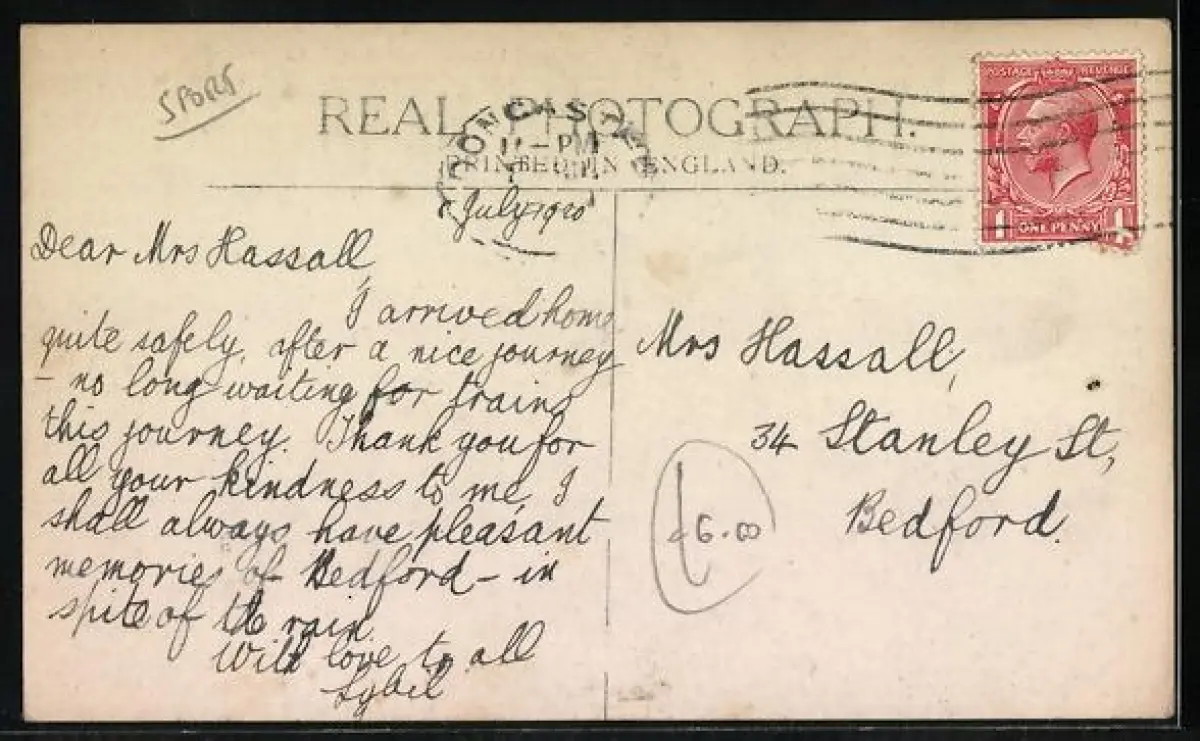 SPORT
REAL PHOTOGRAPH.
PRINTED IN ENGLAND.
DONCASTER
11 - PM
July 1920
POSTAGE REVENUE
1 ONE PENNY 1
Dear Mrs Hassall,
I arrived home
quite safely, after a nice journey
- no long waiting for trains
this journey. Thank you for
all your kindness to me, I
shall always have pleasant
memories of Bedford - in
spite of the rain.
With love to all
Sybil
Mrs Hassall,
34 Stanley St,
Bedford.
£6.00